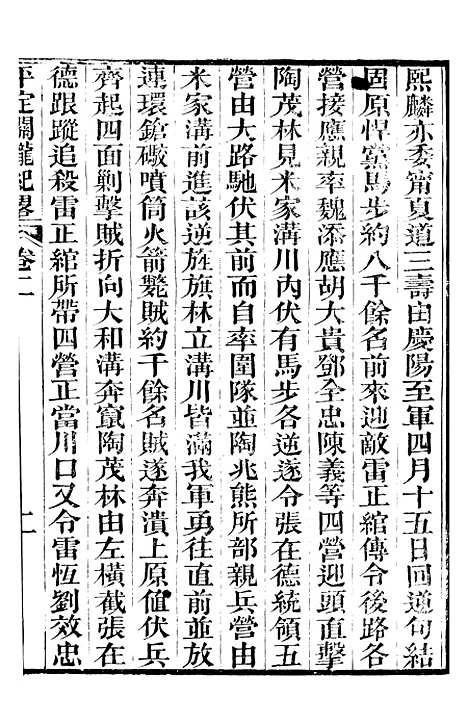 熙麟亦委甯夏道三壽由慶陽至軍四月十五日回逆勾結
固原悍黨馬步約八千餘名前來迎敵雷正綰傳令後路各
營接應親率魏添應胡大貴鄧全忠陳義等四營迎頭直擊
陶茂林見米家溝川內伏有馬步各逆遂令張在德統領五
營由大路馳伏其前而自率圍隊並陶兆熊所部親兵營由
米家溝前進該逆旌旗林立溝川皆滿我軍勇往直前並放
連環鎗礮噴筒火箭斃賊約千餘名賊遂奔潰上原值伏兵
齊起四面剿擊賊折向大和溝奔竄陶茂林由左橫截張在
德跟蹤追殺雷正綰所帶四營正當川口又令雷恆劉效忠
平定關隴紀畧 卷二 二